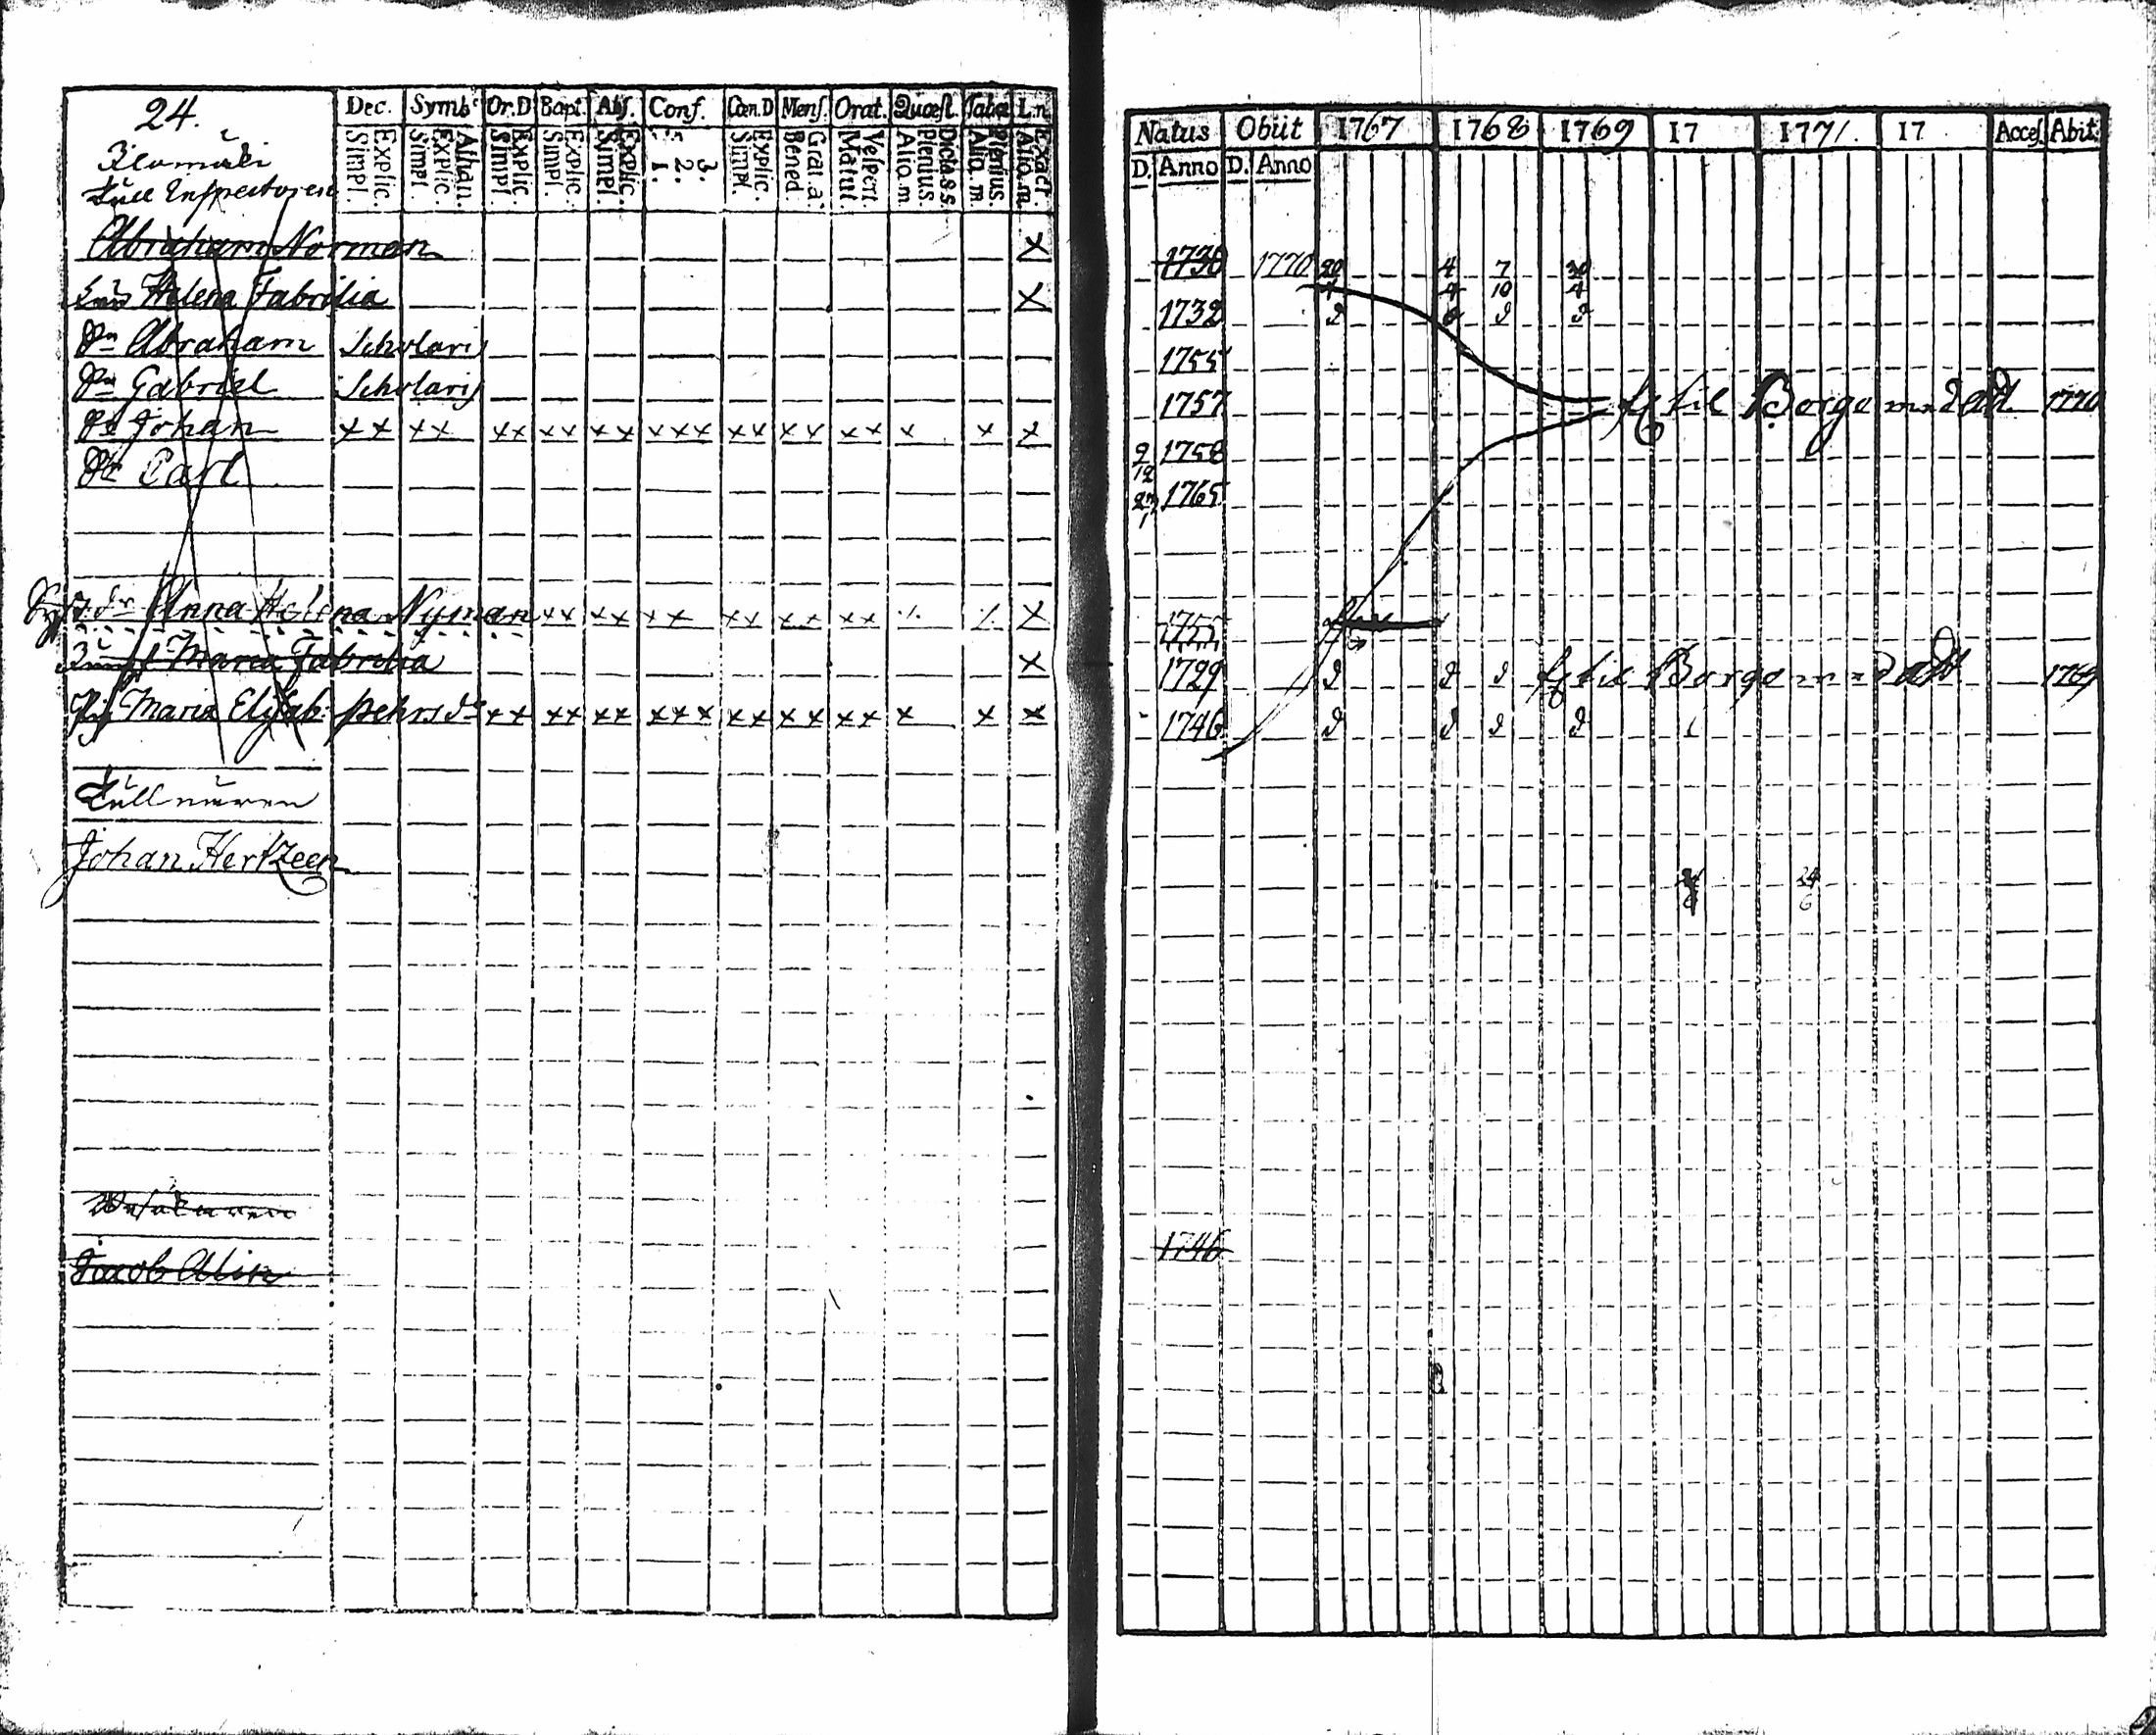 24.
Dec. Symb. Or.D Bapt. Abſ. Conf. Cœn.D Menſ. Orat. Quœſt. Tabœ L.n.
Simpl. Explic. Simpl. Explic. Athan. Simpl. Explic. Simpl. Explic. Simpl. Explic. 1. 2. 3. Simpl. Explic. Bened. Grat. a. Matut. Veſpert. Alio.m. Plenius. Dicta s.s. Alio.m. Plenius. Alio.m. Exact.
Tull Inspectoren
Abraham Norman x
Hu Helena Fabrilia x
Sn Abraham Scholaris
Sn Gabriel Scholaris
Sn Johan x x x x x x x x x x x x x x x x x x x x x x
Sn Carl
Anna Helena Nyman x x x x x x x x x x x x x
Maria Fabrilia x
Pig Maria Elisab: Pehrs dr x x x x x x x x x x x x x x x x x x
Tullnären
Johan Hertzeen
Jacob Alin
Natus Obiit 1767 1768 1769 17 1771. 17 Acceſ. Abit.
D. Anno D. Anno
1730 1770 20/4 4/4 7/10 30/4
1732 d d d d
1755
1757 til Borgo m 1770
9/12 1758
27/1 1765
1755
1729 d d d til Borgo m 1769
1746 d d d d
24/6
1746